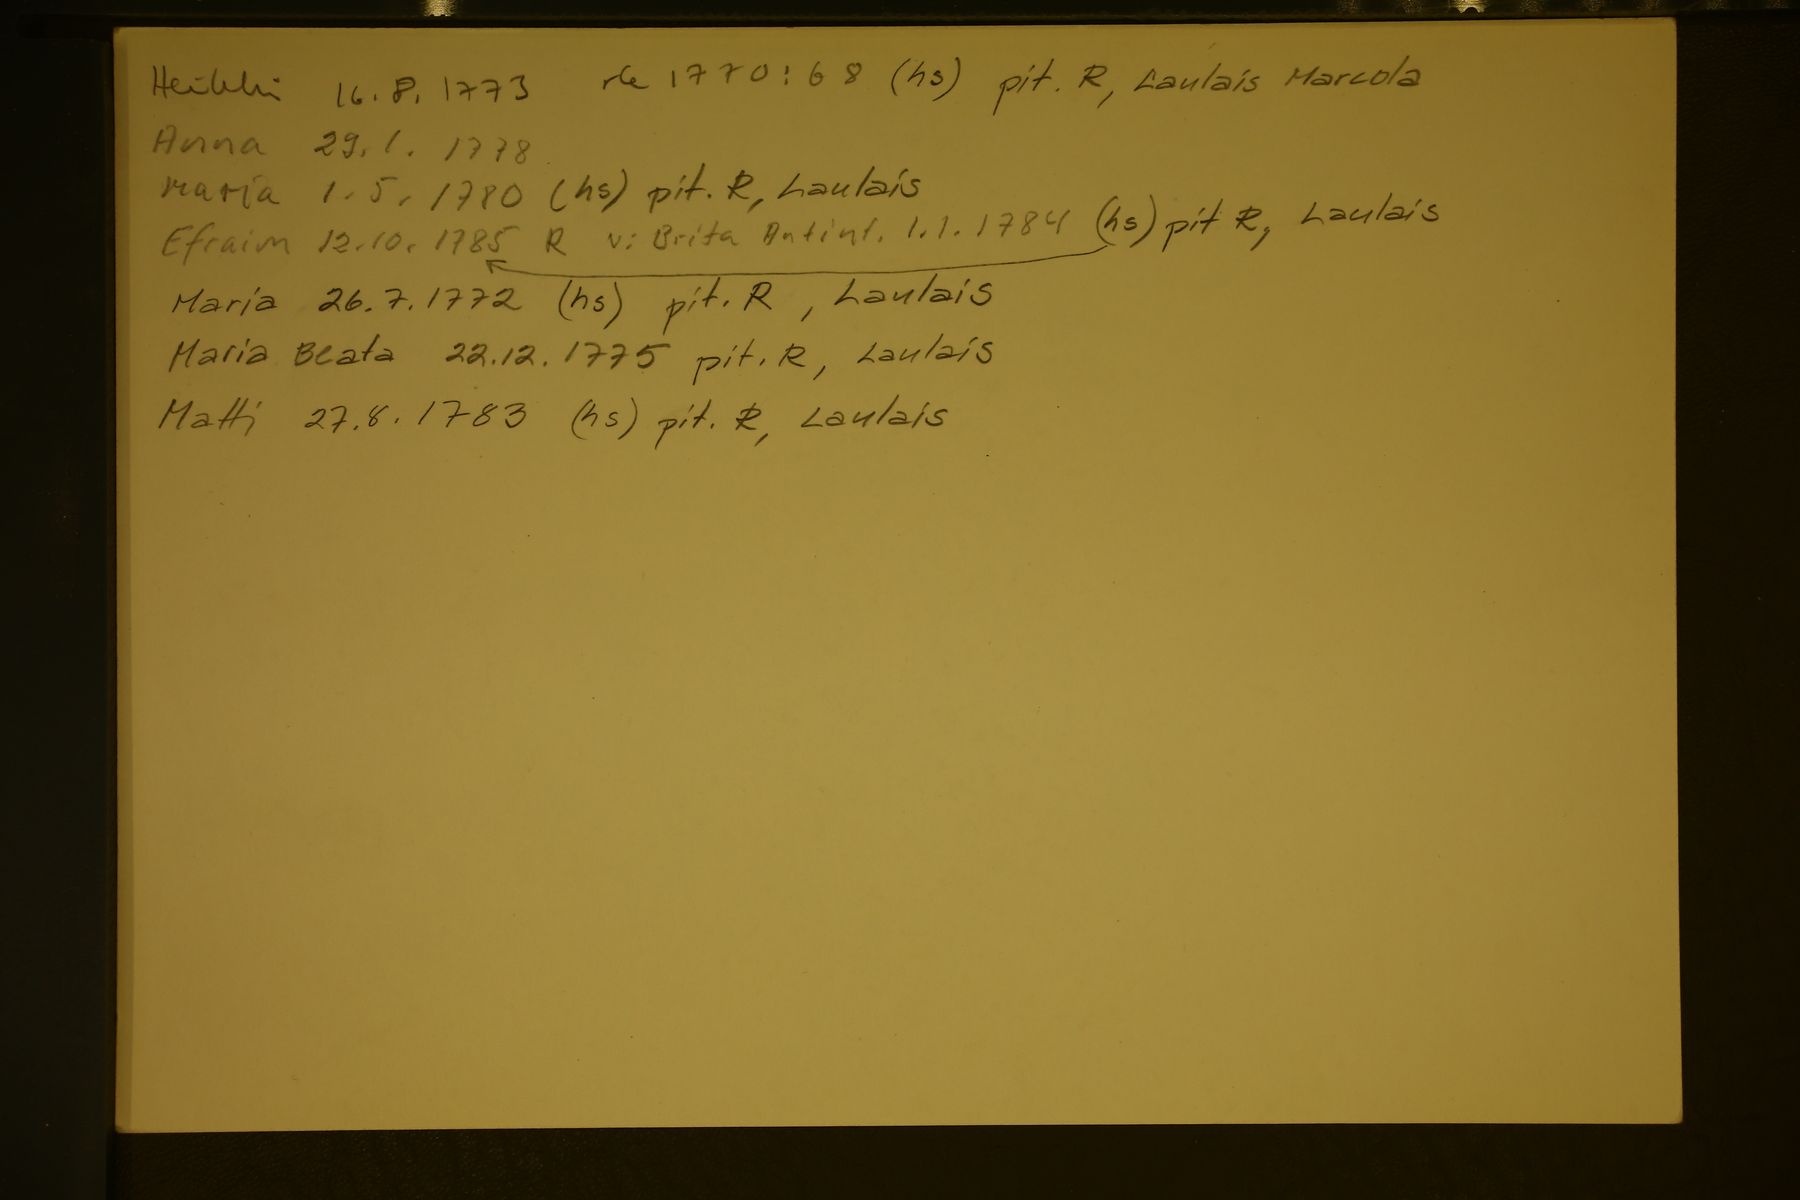 Heikki 16.8.1773 rk 1770:68 (hs) pit. R, Laulais Marcola
Anna 29.1. 1778
Maria 1.5.1780 (hs) pit. R, Laulais
Efraim 12.10.1785 R v: Brita Antint. 1.1.1784 (hs) pit R, Laulais
Maria 26.7.1772 (hs) pit. R, Laulais
Maria Beata 22.12.1775 pit. R, Laulais
Matti 27.8.1783 (hs) pit. R, Laulais